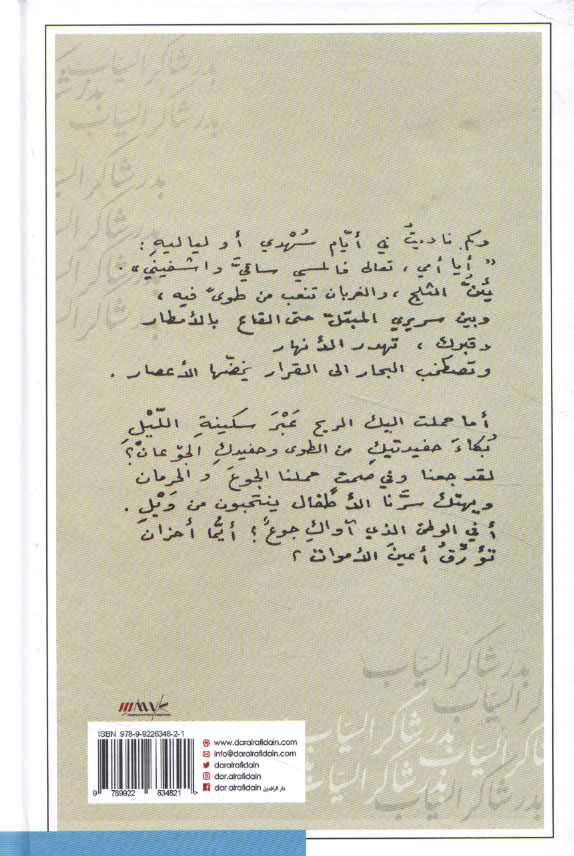 بدر شاكر السيّاب
بدر شاكر السيّاب
بدر شاكر السيّاب
بدر شاكر السيّاب
وكم ناديتُ في أيّام سُهْدي أو لياليهِ :
" أيا أمي ، تعالي فالمسي ساقيَّ واشفيني " .
يئنُّ الثلج ، والغربان تنعب من طوىً فيه ،
وبين سريري المبتلّ حتى القاع بالأمطار
وقبرك ، تهدر الأنهار
وتصطخب البحار الى القرار يخضّها الأعصار .
أما حملت اليك الريح عَبْرَ سكينةِ اللّيْلِ
بُكاءَ حفيدتيكِ من الطوى وحفيدكِ الجوْعانْ ؟
لقد جعنا وفي صمتٍ حملنا الجوعَ و الحرمان
ويهتك سرَّنا الأطفال ينتحبون من وَيْلِ .
أفي الوطن الذي آواكِ جوعٌ ؟ أيُّما أحزان
تؤرّقُ أعينَ الأموات ؟
بدر شاكر السيّاب
بدر شاكر السيّاب
بدر شاكر السيّاب
بدر شاكر السيّاب
ISBN 978-9-9226348-2-1
9 789922 634821 >
www.daralrafidain.com
info@daralrafidain.com
daralrafidain
dar.alrafidain
dar alrafidain دار الرافدين